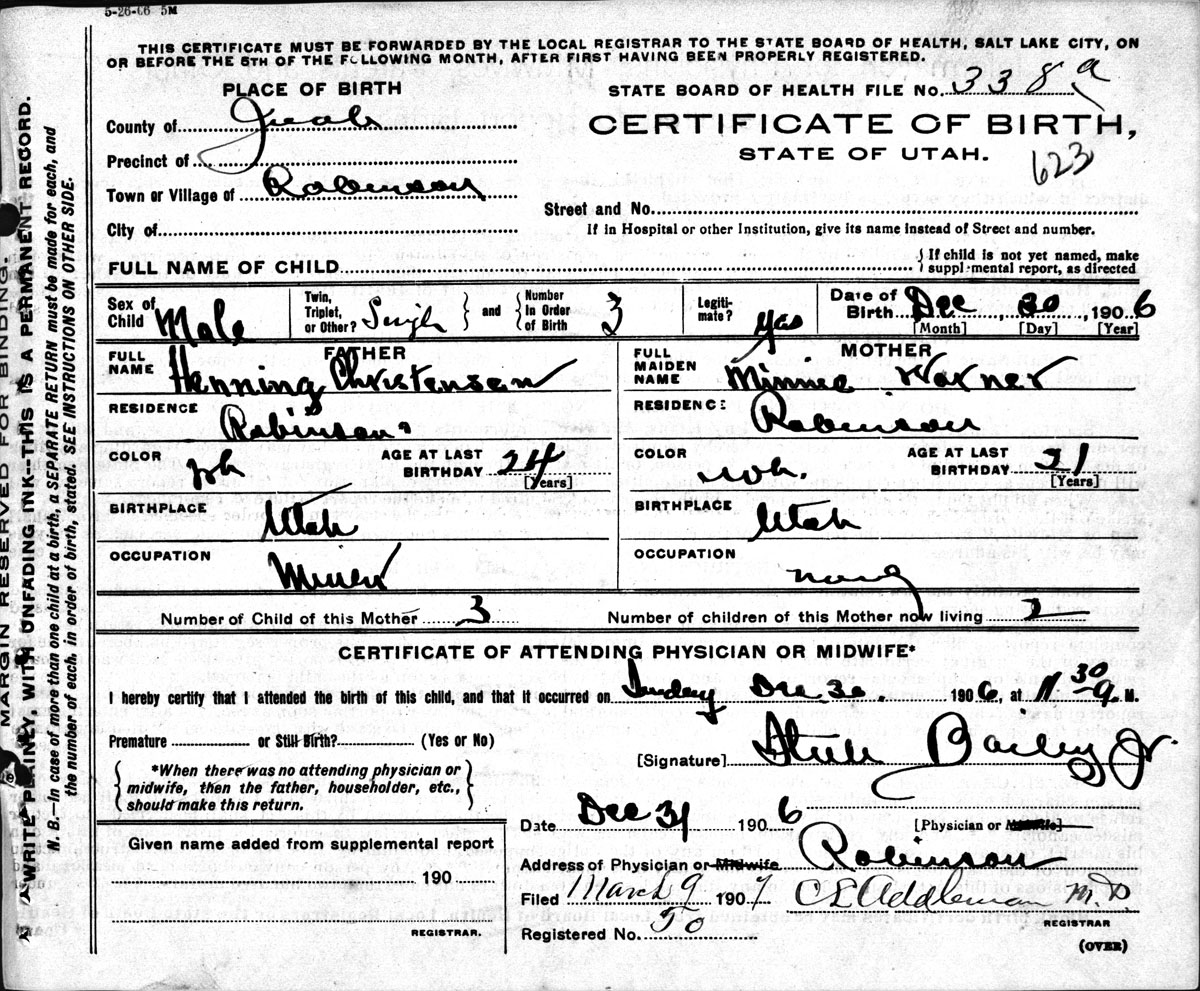 5-26-06 5M
THIS CERTIFICATE MUST BE FORWARDED BY THE LOCAL REGISTRAR TO THE STATE BOARD OF HEALTH, SALT LAKE CITY, ON
OR BEFORE THE 5TH OF THE FOLLOWING MONTH, AFTER FIRST HAVING BEEN PROPERLY REGISTERED.
PLACE OF BIRTH
STATE BOARD OF HEALTH FILE No. 338 9
County of Juab
CERTIFICATE OF BIRTH,
STATE OF UTAH.
623
Precinct of
Town or Village of Robinson
Street and No.
City of
If in Hospital or other Institution, give its name instead of Street and number.
FULL NAME OF CHILD
{If child is not yet named, make supplemental report, as directed
Sex of Child Male
Twin, Triplet, or Other? Single } and { Number in Order of Birth 3
Legitimate? Yes
Date of Birth Dec, 30, 1906
[Month] [Day] [Year]
FATHER
FULL NAME Henning Christensen
RESIDENCE Robinson
COLOR Wh AGE AT LAST BIRTHDAY 24 [Years]
BIRTHPLACE Utah
OCCUPATION Miner
MOTHER
FULL MAIDEN NAME Minnie Warner
RESIDENCE Robinson
COLOR Wh. AGE AT LAST BIRTHDAY 21 [Years]
BIRTHPLACE Utah
OCCUPATION
Number of Child of this Mother 3
Number of children of this Mother now living 2
CERTIFICATE OF ATTENDING PHYSICIAN OR MIDWIFE*
I hereby certify that I attended the birth of this child, and that it occurred on Sunday Dec 30. 1906, at 11 30 a. M.
Premature or Still Birth? (Yes or No)
[Signature] Steele Bailey Jr.
{*When there was no attending physician or midwife, then the father, householder, etc., should make this return.}
Date Dec 31 1906
[Physician or Midwife]
Given name added from supplemental report
190
REGISTRAR.
Address of Physician or Midwife Robinson
Filed March 9 1907 C E Addleman M.D
REGISTRAR
Registered No. 50
(OVER)
MARGIN RESERVED FOR BINDING.
WRITE PLAINLY, WITH UNFADING INK—THIS IS A PERMANENT RECORD.
N. B.—In case of more than one child at a birth, a SEPARATE RETURN must be made for each, and
the number of each, in order of birth, stated. SEE INSTRUCTIONS ON OTHER SIDE.